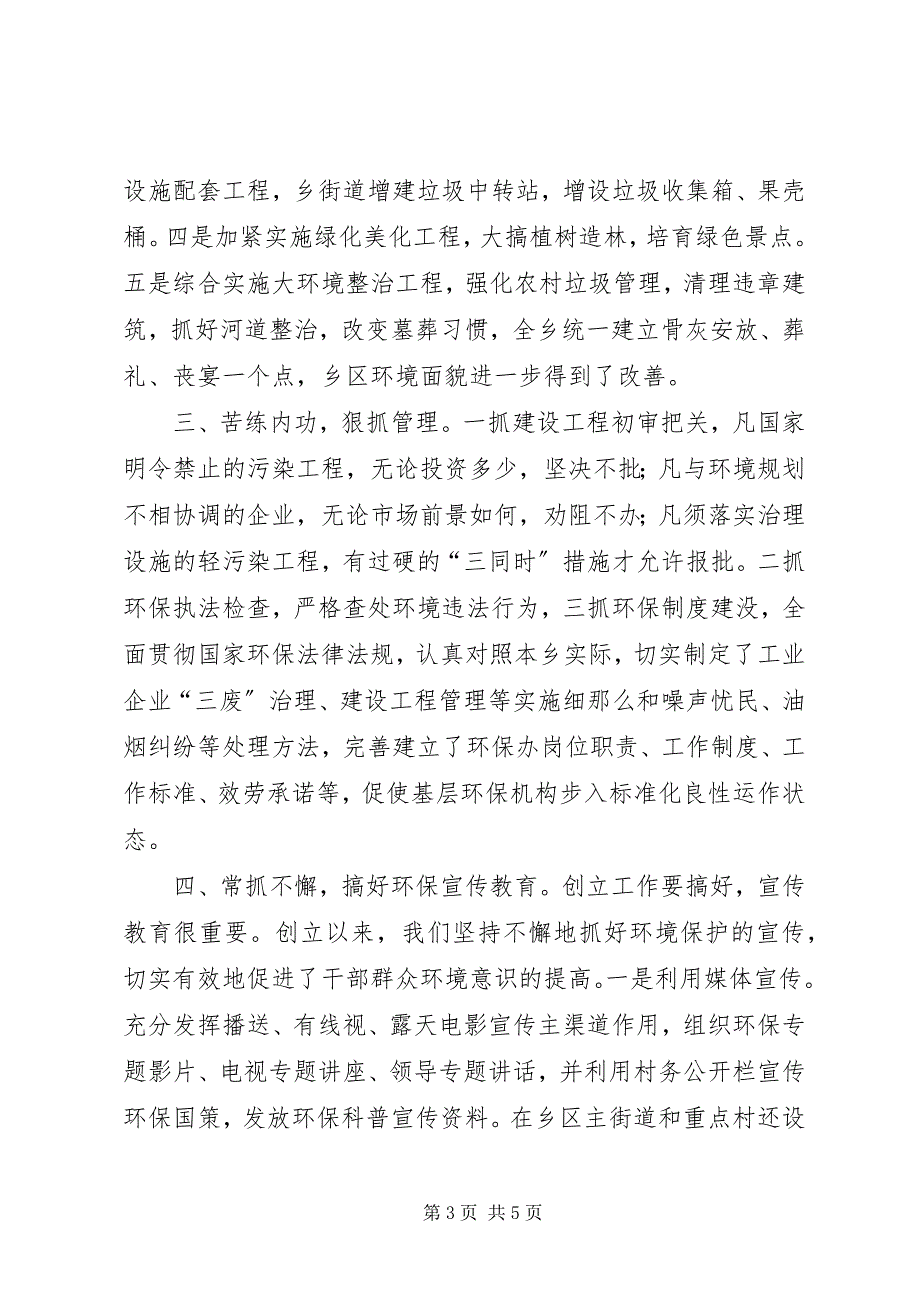 设施配套工程，乡街道增建垃圾中转站，增设垃圾收集箱、果壳
桶。四是加紧实施绿化美化工程，大搞植树造林，培育绿色景点。
五是综合实施大环境整治工程，强化农村垃圾管理，清理违章建
筑，抓好河道整治，改变墓葬习惯，全乡统一建立骨灰安放、葬
礼、丧宴一个点，乡区环境面貌进一步得到了改善。
三、苦练内功，狠抓管理。一抓建设工程初审把关，凡国家
明令禁止的污染工程，无论投资多少，坚决不批；凡与环境规划
不相协调的企业，无论市场前景如何，劝阻不办；凡须落实治理
设施的轻污染工程，有过硬的“三同时〞措施才允许报批。二抓
环保执法检查，严格查处环境违法行为，三抓环保制度建没，全
面贯彻国家环保法律法规，认真对照本乡实际，切实制定了工业
企业“三废〞治理、建设工程管理等实施细那么和噪声忧民、油
烟纠纷等处理方法，完善建立了环保办岗位职责、工作制度、工
作标准、效劳承诺等，促使基层环保机构步入标准化良性运作状
态。
四、常抓不懈，搞好环保宣传教育。创立工作要搞好，宣传
教育很重要。创立以来，我们坚持不懈地抓好环境保护的宣传，
切实有效地促进了干部群众环境意识的提高。一是利用媒体宣传。
充分发挥播送、有线视、露天电影宣传主渠道作用，组织环保专
题影片、电视专题讲座、领导专题讲话，并利用村务公开栏宣传
环保国策，发放环保科普宣传资料。在乡区主街道和重点村还设
第 3 页 共 5 页